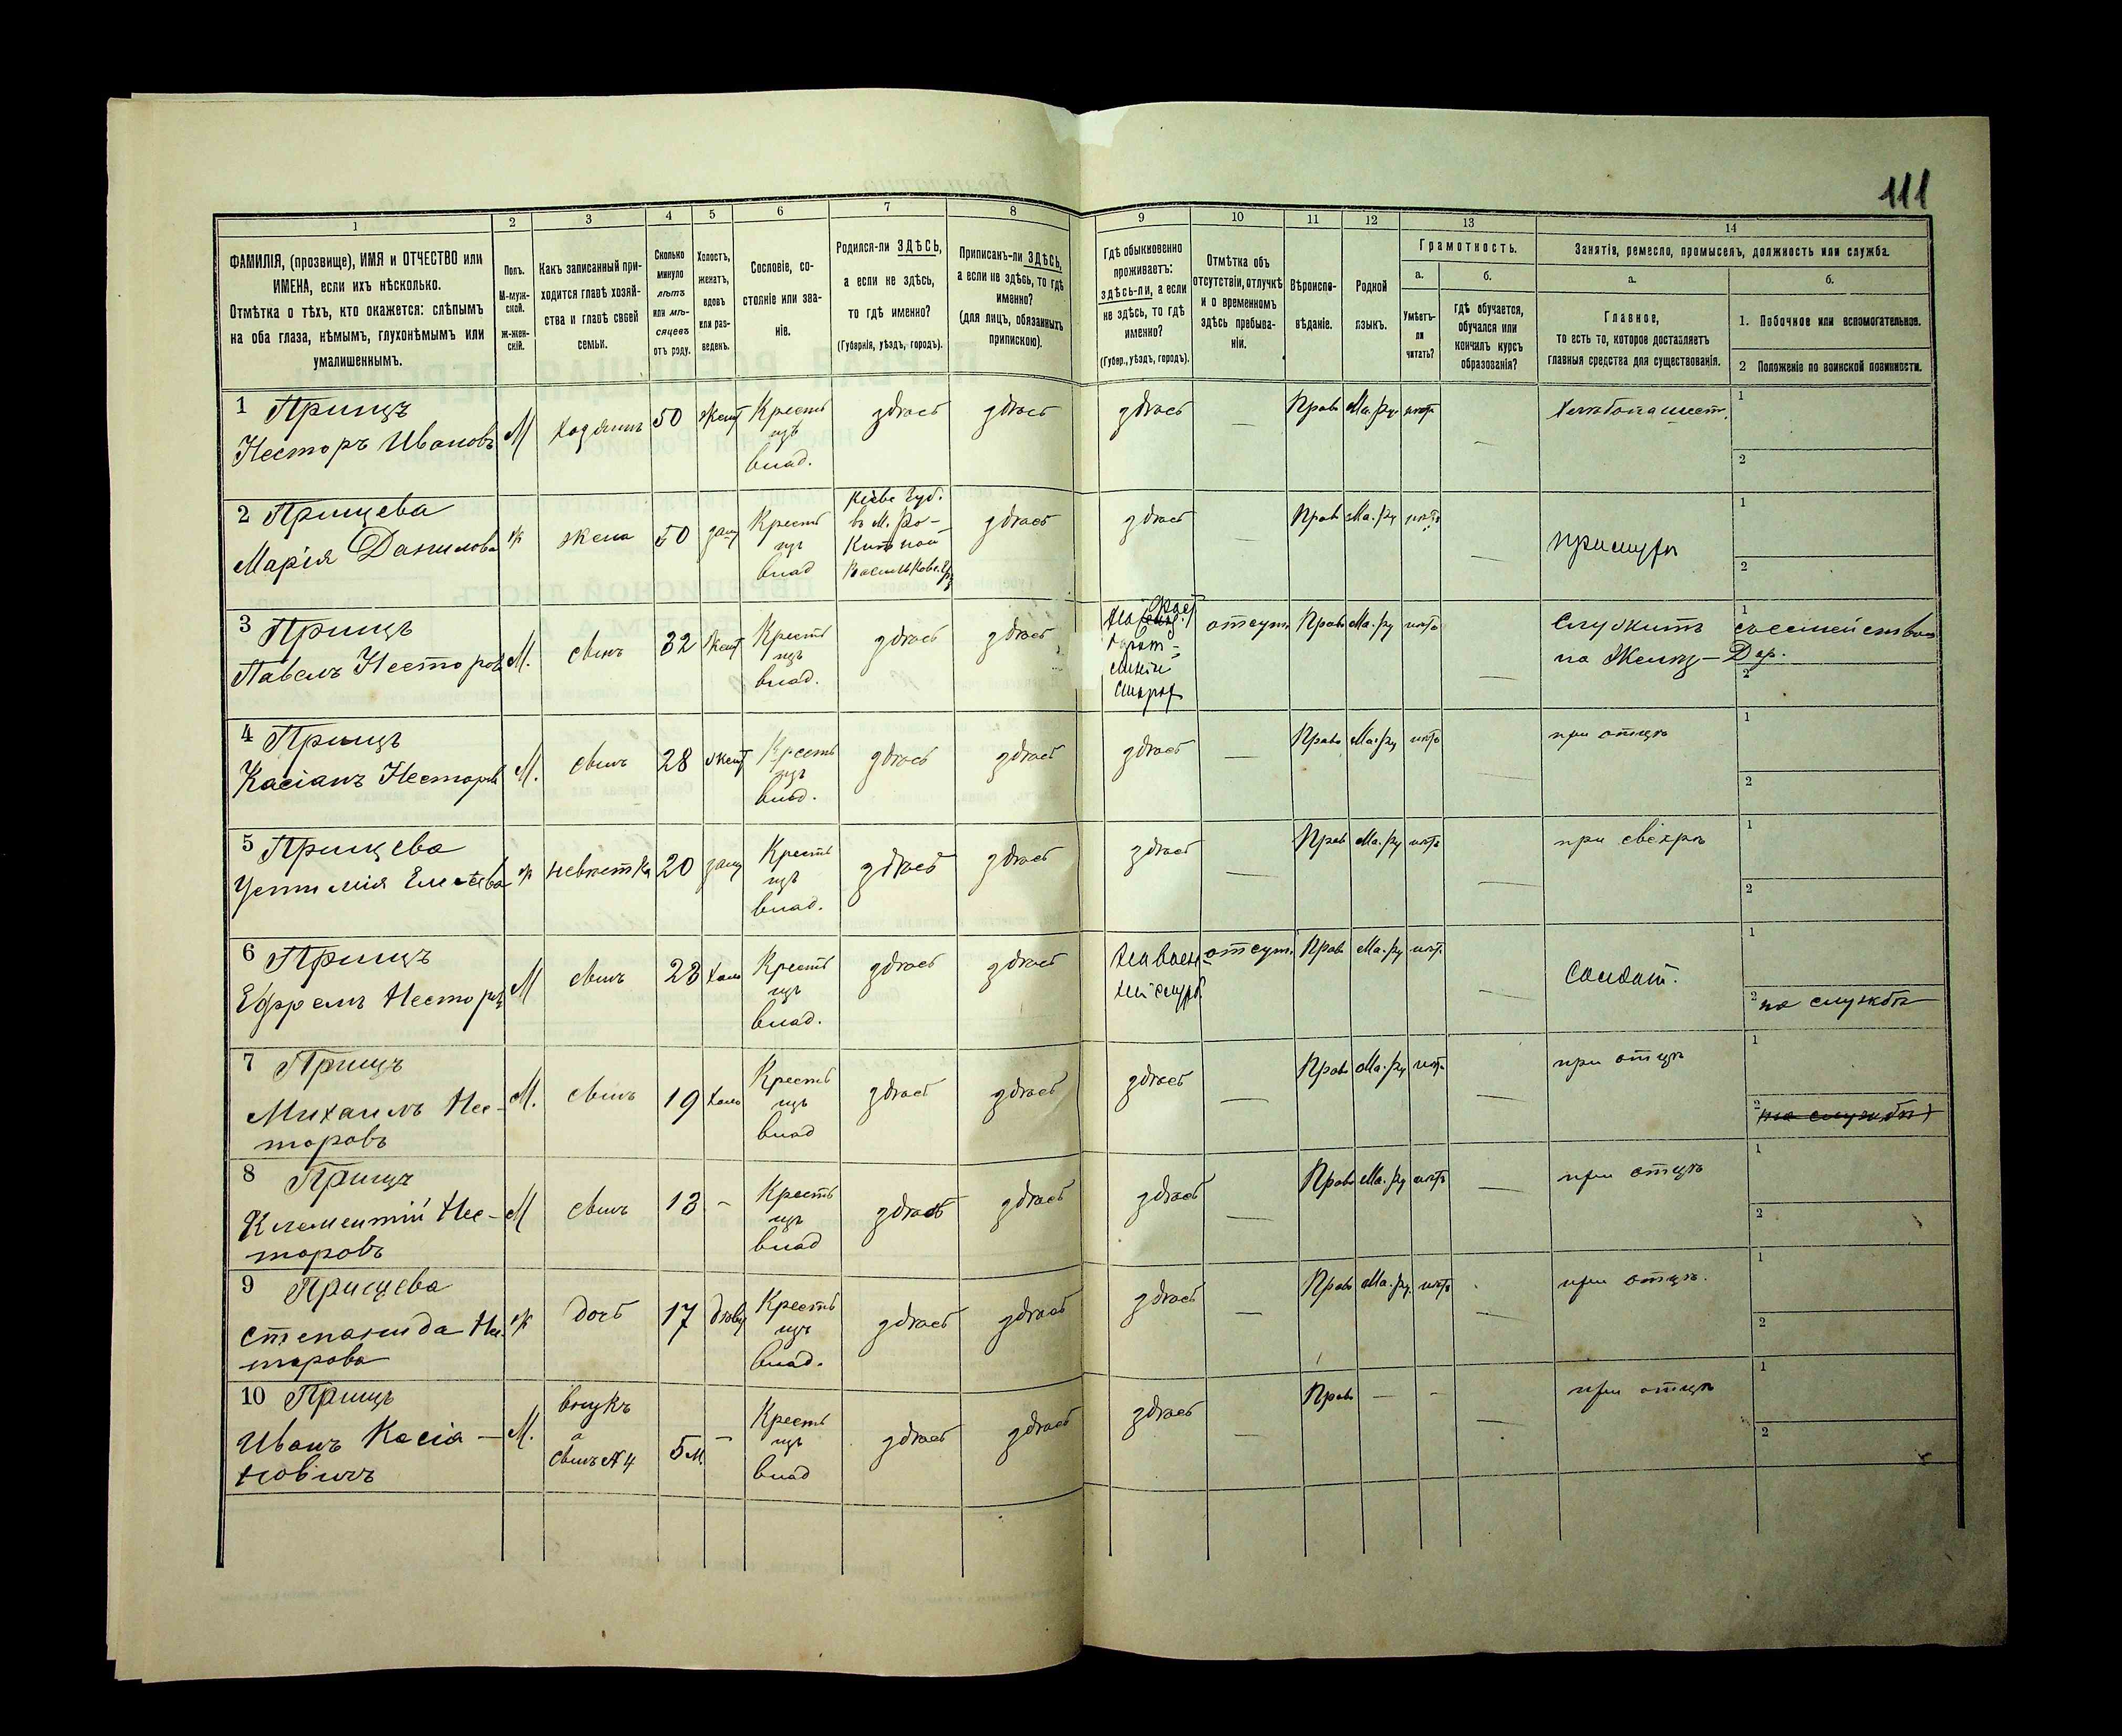 111
1
2
3
4
5
6
7
8
9
10
11
12
13
14
ФАМИЛІЯ, (прозвище), ИМЯ и ОТЧЕСТВО или
ИМЕНА, если ихъ нѣсколько.
Отмѣтка о тѣхъ, кто окажется: слѣпымъ
на оба глаза, нѣмымъ, глухонѣмымъ или
умалишеннымъ.
Полъ.
М-муж-
ской.
Ж-жен-
скій.
Какъ записанный при-
ходится главѣ хозяй-
ства и главѣ своей
семьи.
Сколько
минуло
лѣтъ
или мѣ-
сяцевъ
отъ роду.
Холостъ,
женатъ,
вдовъ
или раз-
веденъ.
Сословіе, со-
стояніе или зва-
ніе.
Родился-ли ЗДѢСЬ,
а если не здѣсь,
то гдѣ именно?
(Губернія, уѣздъ, городъ).
Приписанъ-ли ЗДѢСЬ,
а если не здѣсь, то гдѣ
именно?
(для лицъ, обязанныхъ
припискою).
Гдѣ обыкновенно
проживаетъ:
здѣсь-ли, а если
не здѣсь, то гдѣ
именно?
(Губер., уѣздъ, городъ).
Отмѣтка объ
отсутствіи, отлучкѣ
и о временномъ
здѣсь пребыва-
ніи.
Вѣроиспо-
вѣданіе.
Родной
языкъ.
Грамотность.
а.
б.
Умѣетъ-
ли
читать?
Гдѣ обучается,
обучался или
кончилъ курсъ
образованія?
Занятія, ремесло, промыселъ, должность или служба.
а.
б.
Главное,
то есть то, которое доставляетъ
главныя средства для существованія.
1. Побочное или вспомогательное.
2 Положеніе по воинской повинности.
1 Прищъ
Несторъ Ивановъ
М
хозяинъ
50
жент
Крестъ
изъ
влад.
здѣсь
здѣсь
здѣсь
—
Прав
Ма.ру
нѣтъ
—
1
2
2 Прищева
Марія Данилова
ж
жена
50
зам
Крестъ
изъ
влад
Кіевс губ.
въ м. Ро-
Китной
здѣсь
здѣсь
—
Прав
Ма.ру
нѣтъ
—
при мужѣ
1
2
3 Прищъ
Павелъ Несторов
М.
сынъ
32
жент
Крестъ
изъ
влад.
здѣсь
здѣсь
отсут.
Прав
Ма.ру
нѣтъ
—
Служитъ
на Желѣз-Дор.
1
съ семейством
2
4 Прищъ
Касіанъ Несторов
М.
сынъ
28
жент
Крестъ
изъ
влад.
здѣсь
здѣсь
здѣсь
—
Прав
Ма.ру
нѣтъ
—
при отцѣ
1
2
5 Прищева
Устимія Елисѣева
ж
невѣстка
20
зам
Крестъ
изъ
влад.
здѣсь
здѣсь
здѣсь
—
Прав
Ма.ру
нѣтъ
—
при свекрѣ
1
2
6 Прищъ
Ефремъ Несторов
М
сынъ
23
холо
Крестъ
изъ
влад.
здѣсь
здѣсь
На воен-
ной служб
отсут.
Прав
Ма.ру
нѣтъ
—
Солдат.
1
2 на службѣ
7 Прищъ
Михаилъ Нес-
торовъ
М.
сынъ
19
холо
Крестъ
изъ
влад
здѣсь
здѣсь
здѣсь
—
Прав
Ма.ру
нѣтъ
—
при отцѣ
1
2 (на службѣ)
8 Прищъ
Климентій Нес-
торовъ
М
сынъ
13
-
Крестъ
изъ
влад
здѣсь
здѣсь
здѣсь
—
Прав
Ма.ру
нѣтъ
—
при отцѣ
1
2
9 Прищева
Степанида Нес
торова
ж
дочь
17
дѣвиц
Крестъ
изъ
влад.
здѣсь
здѣсь
здѣсь
—
Прав
Ма.ру.
нѣтъ
—
при отцѣ.
1
2
10 Прищъ
Иванъ Касіа-
новичъ
М.
внукъ
а
сынъ № 4
5 м.
-
Крестъ
изъ
влад
здѣсь
здѣсь
здѣсь
—
Прав
—
-
—
при отцѣ
1
2